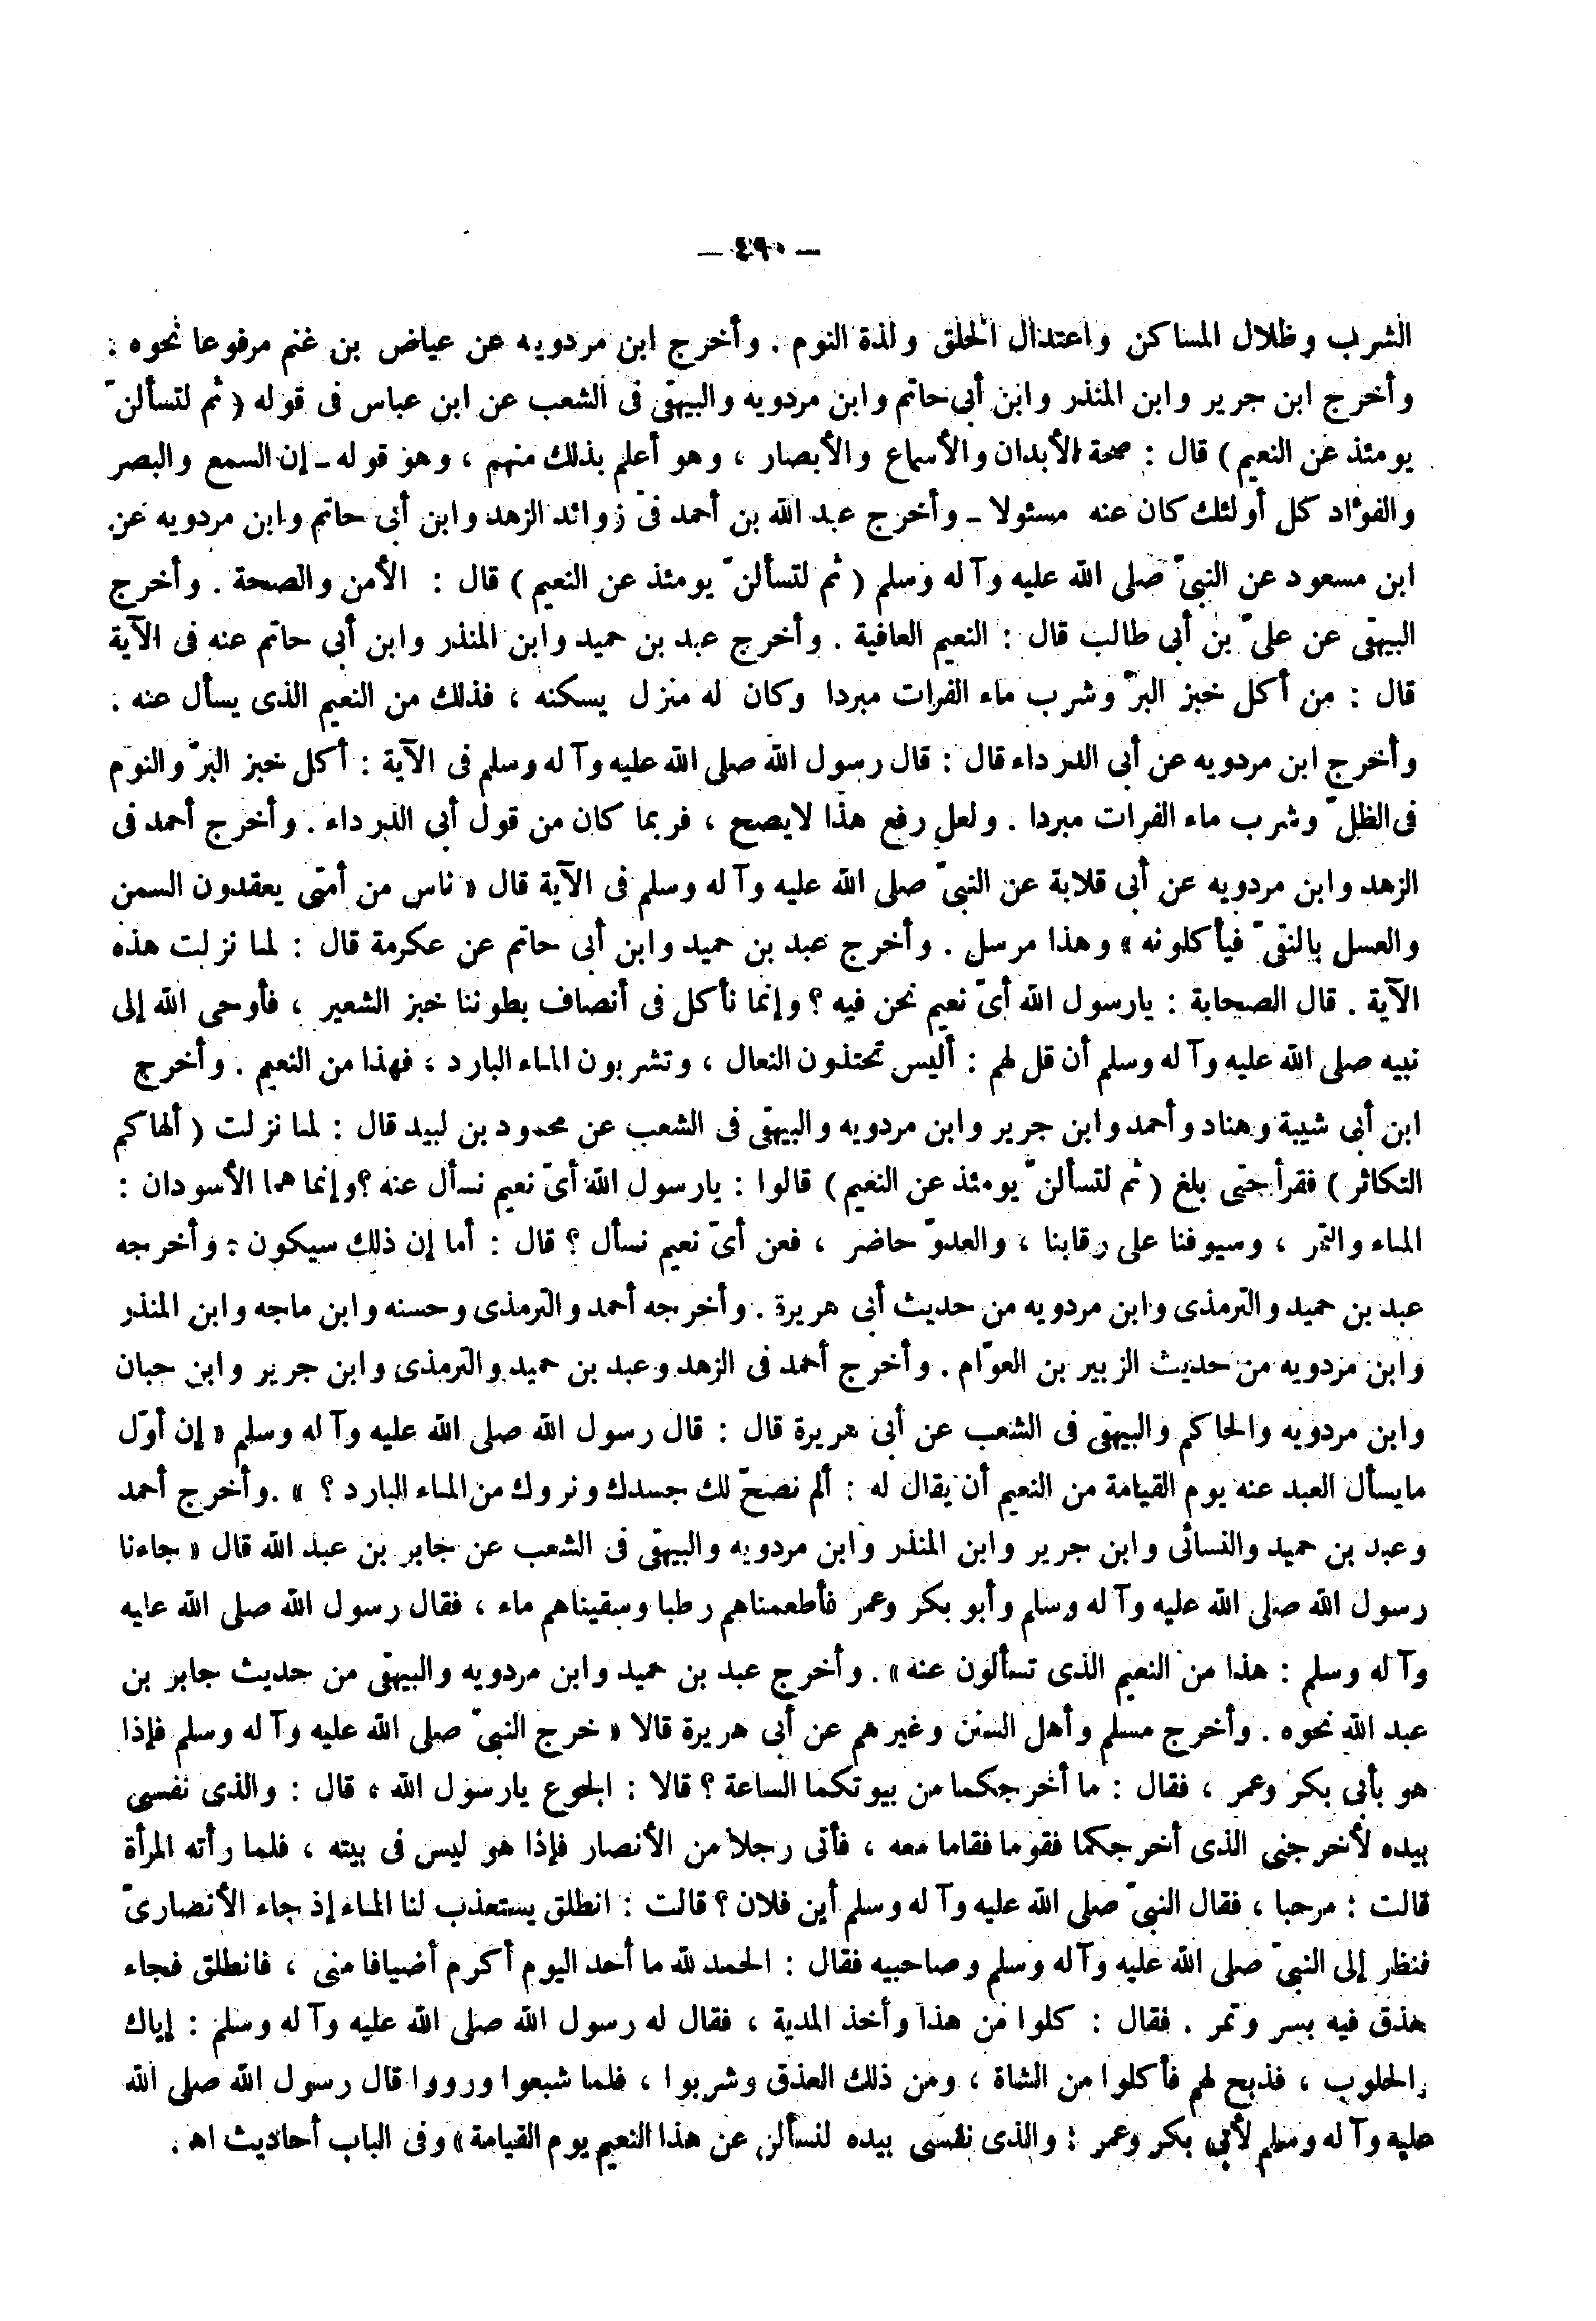 — ٤٩٠ —
الشرب وظلال المساكن واعتدال الخلق ولذة النوم . وأخرج ابن مردويه عن عياض بن غنم مرفوعا نحوه .
وأخرج ابن جرير وابن المنذر وابن أبي حاتم وابن مردويه والبيهقى فى الشعب عن ابن عباس فى قوله ( ثم لتسألنّ
يومئذ عن النعيم ) قال : صحة الأبدان والأسماع والأبصار ، وهو أعلم بذلك منهم ، وهو قوله ـ إن السمع والبصر
والفؤاد كل أولئك كان عنه مسئولا ـ وأخرج عبد الله بن أحمد فى زوائد الزهد وابن أبى حاتم وابن مردويه عن
ابن مسعود عن النبىّ صلى الله عليه وآله وسلم ( ثم لتسألنّ يومئذ عن النعيم ) قال : الأمن والصحة . وأخرج
البيهقى عن علىّ بن أبى طالب قال : النعيم العافية . وأخرج عبد بن حميد وابن المنذر وابن أبى حاتم عنه فى الآية
قال : من أكل خبز البرّ وشرب ماء الفرات مبردا وكان له منزل يسكنه ، فذلك من النعيم الذى يسأل عنه .
وأخرج ابن مردويه عن أبى الدرداء قال : قال رسول الله صلى الله عليه وآله وسلم فى الآية : أكل خبز البرّ والنوم
فى الظلّ وشرب ماء الفرات مبردا . ولعل رفع هذا لايصح ، فربما كان من قول أبى الدرداء . وأخرج أحمد فى
الزهد وابن مردويه عن أبى قلابة عن النبىّ صلى الله عليه وآله وسلم فى الآية قال « ناس من أمتى يعقدون السمن
والعسل بالنقىّ فيأكلونه » وهذا مرسل . وأخرج عبد بن حميد وابن أبى حاتم عن عكرمة قال : لما نزلت هذه
الآية . قال الصحابة : يارسول الله أىّ نعيم نحن فيه ؟ وإنما نأكل فى أنصاف بطوننا خبز الشعير ، فأوحى الله إلى
نبيه صلى الله عليه وآله وسلم أن قل لهم : أليس تحتذون النعال ، وتشربون الماء البارد ، فهذا من النعيم . وأخرج
ابن أبى شيبة وهناد وأحمد وابن جرير وابن مردويه والبيهقى فى الشعب عن محمود بن لبيد قال : لما نزلت ( ألهاكم
التكاثر ) فقرأ حتى بلغ ( ثم لتسألنّ يومئذ عن النعيم ) قالوا : يارسول الله أىّ نعيم نسأل عنه ؟ وإنما هما الأسودان :
الماء والتمر ، وسيوفنا على رقابنا ، والعدوّ حاضر ، فعن أىّ نعيم نسأل ؟ قال : أما إن ذلك سيكون . وأخرجه
عبد بن حميد والترمذى وابن مردويه من حديث أبى هريرة . وأخرجه أحمد والترمذى وحسنه وابن ماجه وابن المنذر
وابن مردويه من حديث الزبير بن العوّام . وأخرج أحمد فى الزهد وعبد بن حميد والترمذى وابن جرير وابن حبان
وابن مردويه والحاكم والبيهقى فى الشعب عن أبى هريرة قال : قال رسول الله صلى الله عليه وآله وسلم « إن أوّل
مايسأل العبد عنه يوم القيامة من النعيم أن يقال له : ألم نصحّ لك جسدك ونروك من الماء البارد ؟ » . وأخرج أحمد
وعبد بن حميد والنسائى وابن جرير وابن المنذر وابن مردويه والبيهقى فى الشعب عن جابر بن عبد الله قال « جاءنا
رسول الله صلى الله عليه وآله وسلم وأبو بكر وعمر فأطعمناهم رطبا وسقيناهم ماء ، فقال رسول الله صلى الله عليه
وآله وسلم : هذا من النعيم الذى تسألون عنه » . وأخرج عبد بن حميد وابن مردويه والبيهقى من حديث جابر بن
عبد الله نحوه . وأخرج مسلم وأهل السنن وغيرهم عن أبى هريرة قالا « خرج النبىّ صلى الله عليه وآله وسلم فإذا
هو بأبى بكر وعمر ، فقال : ما أخرجكما من بيوتكما الساعة ؟ قالا : الجوع يارسول الله ، قال : والذى نفسى
بيده لأخرجنى الذى أخرجكما فقوما فقاما معه ، فأتى رجلا من الأنصار فإذا هو ليس فى بيته ، فلما رأته المرأة
قالت : مرحبا ، فقال النبىّ صلى الله عليه وآله وسلم أين فلان ؟ قالت : انطلق يستعذب لنا الماء إذ جاء الأنصارىّ
فنظر إلى النبىّ صلى الله عليه وآله وسلم وصاحبيه فقال : الحمد لله ما أحد اليوم أكرم أضيافا منى ، فانطلق فجاء
بعذق فيه بسر وتمر . فقال : كلوا من هذا وأخذ المدية ، فقال له رسول الله صلى الله عليه وآله وسلم : إياك
والحلوب ، فذبح لهم فأكلوا من الشاة ، ومن ذلك العذق وشربوا ، فلما شبعوا ورووا قال رسول الله صلى الله
عليه وآله وسلم لأبى بكر وعمر : والذى نفسى بيده لنسألن عن هذا النعيم يوم القيامة » وفى الباب أحاديث اه .